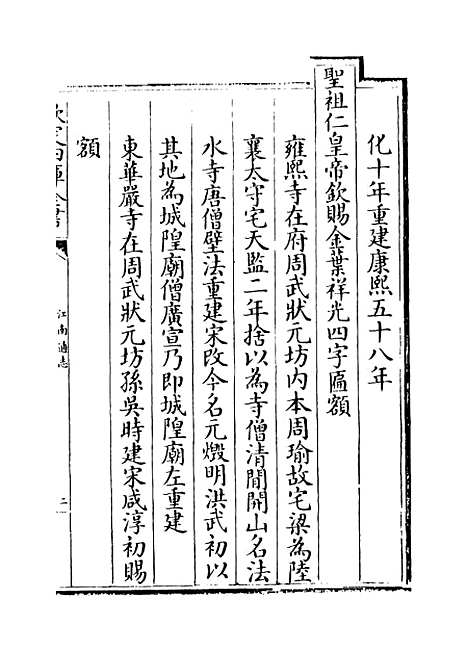 化十年重建康熙五十八年
聖祖仁皇帝欽賜金葉祥光四字匾額
雍熙寺在府周武狀元坊内本周瑜故宅梁為陸
襄太守宅天監二年捨以為寺僧清閒開山名法
水寺唐僧壁法重建宋改今名元燬明洪武初以
其地為城隍廟僧廣宣乃即城隍廟左重建
東華嚴寺在周武狀元坊孫吳時建宋咸淳初賜
額
欽定四庫全書
江南通志
二